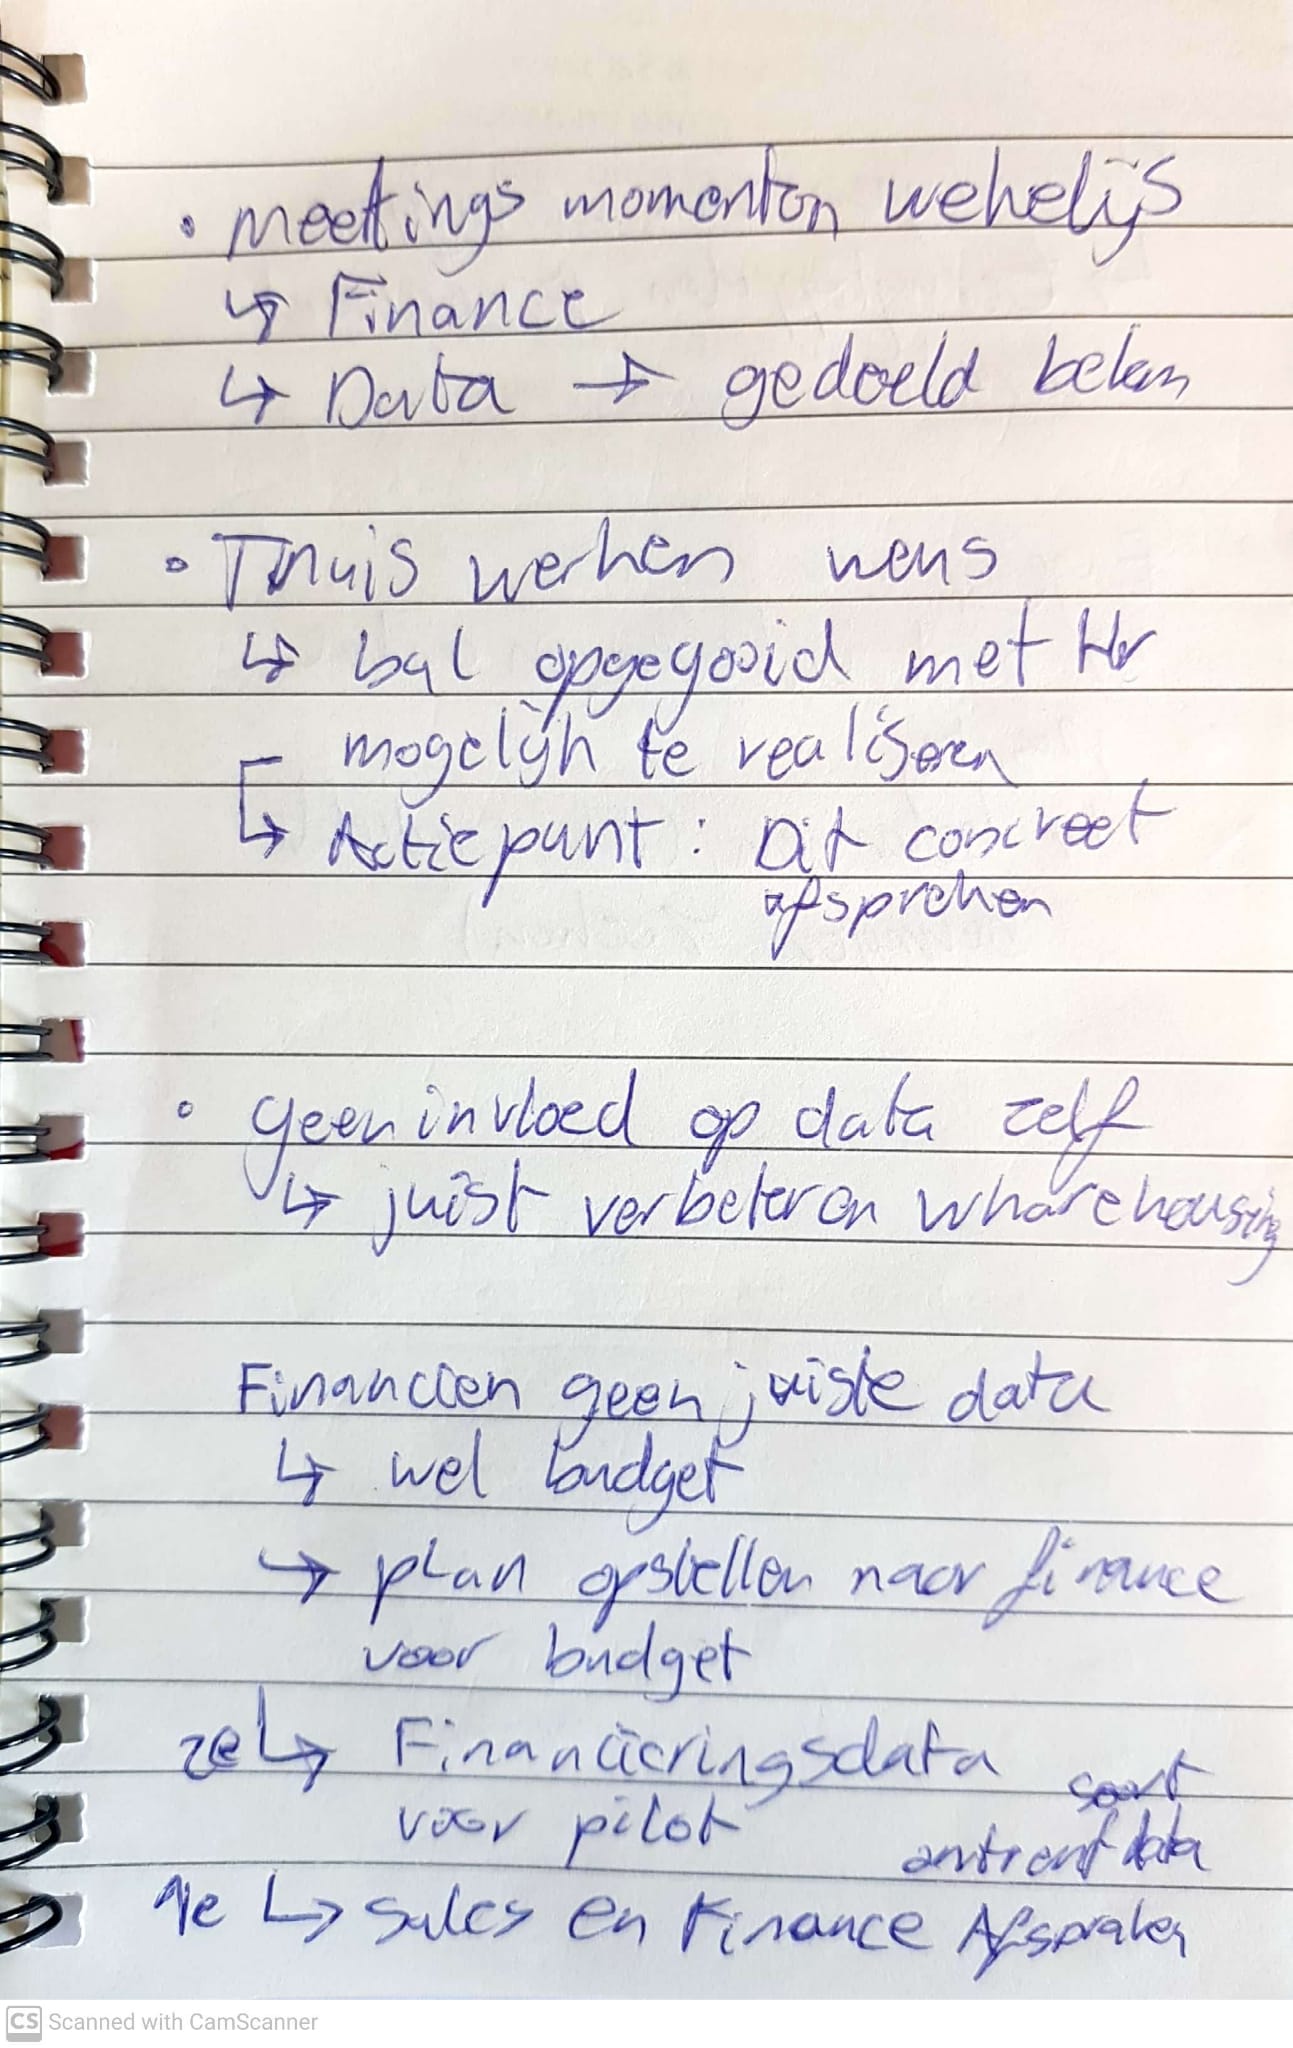 • meetings momenten wekelijs
↳ Finance
↳ Data → gedoeld
• Thuis werken wens
↳ bal opgegooid met Hr
mogelijk te realiseren
↳ Actiepunt: Dit concreet
afspreken
• geen invloed op data zelf
↳ juist verbeteren wharehousing
Financien geen juiste data
↳ wel budget
↳ plan opstellen naar finance
voor budget
2e ↳ Financieringsdata
voor pilot
soort
omtrent data
1e ↳ Sales en Finance Afspraken
CS Scanned with CamScanner